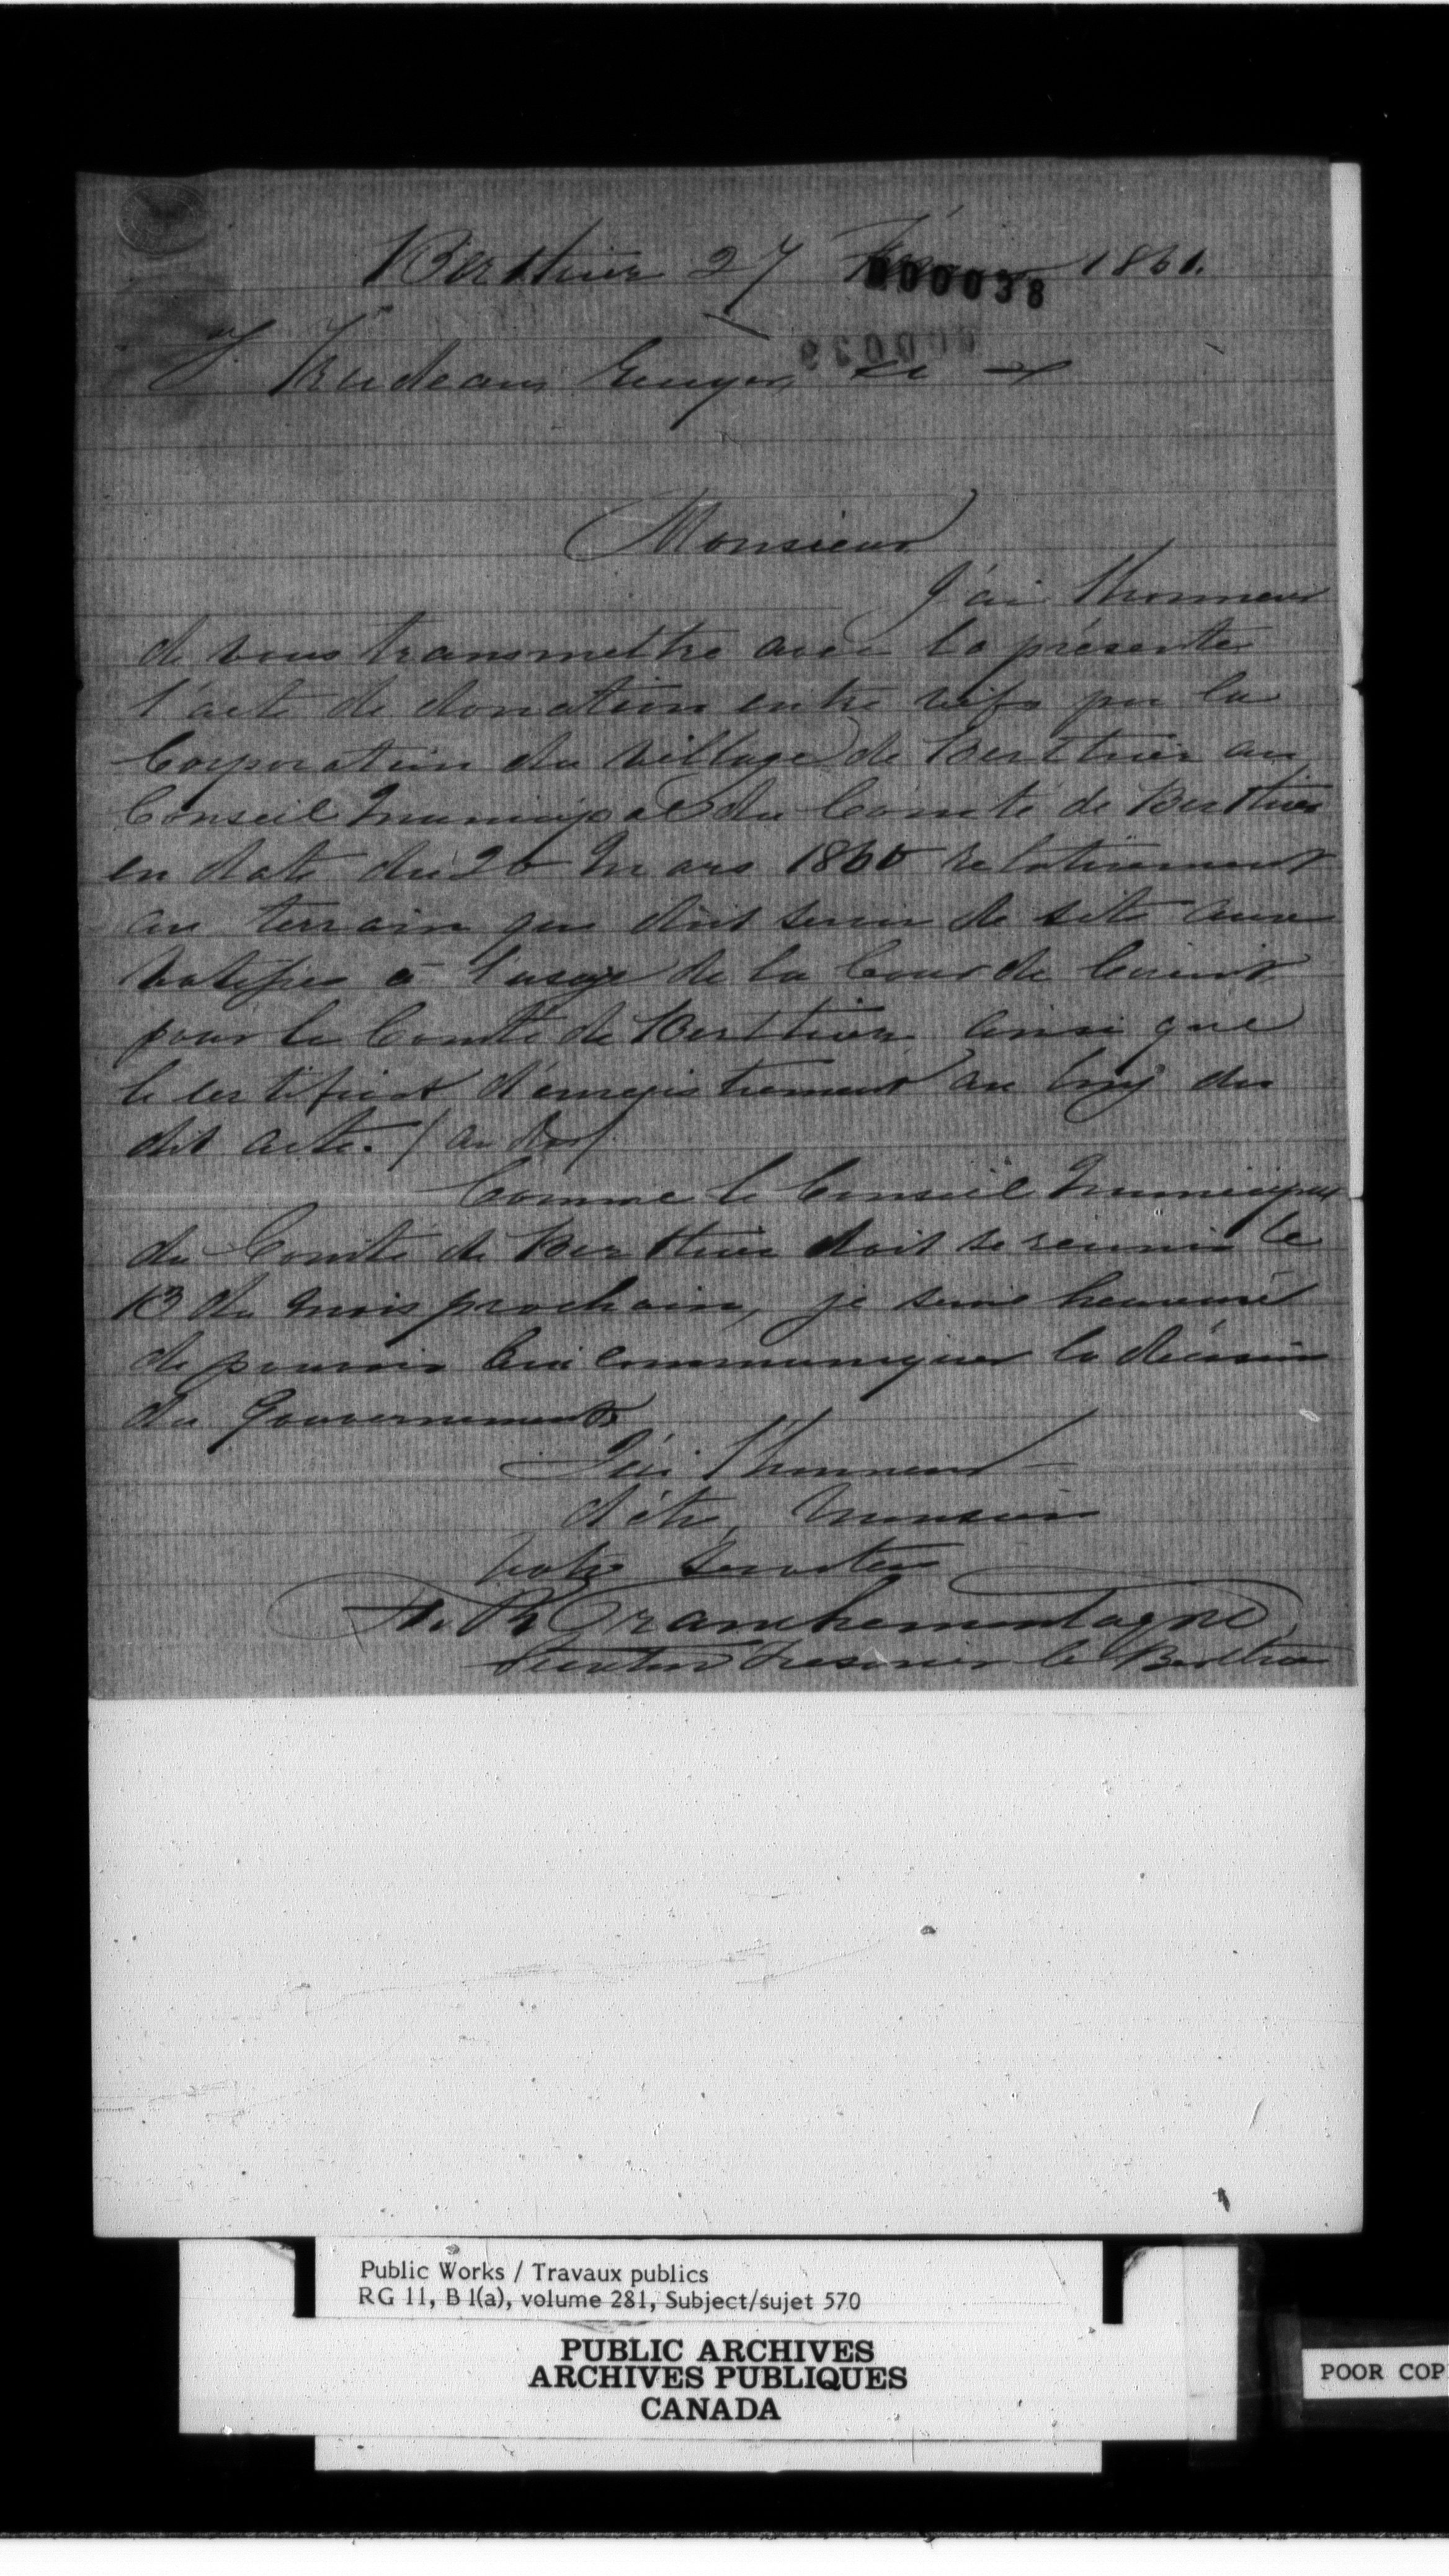 Berthier 27 1861.
000038
J. Trudeau Ecuyer
Monsieur
J'ai l'honneur
de vous transmettre avec la présente
l'acte de donation entre vifs par la
Corporation du village de Berthier au
Conseil Municipal du Comté de Berthier
en date du 26 Mars 1860 relativement
au terrain qui doit servir de site aux
batisses à l'usage de la Cour de Circuit
pour le Comté de Berthier ainsi que
le certificat d'enregistrement au long du
dit acte. (au dos)
Comme le Conseil Municipal
du Comté de Berthier doit se réunir le
13 du mois prochain, je serais heureux
de pouvoir lui communiquer la décision
du Gouvernement
J'ai l'honneur
d'être, Monsieur
Votre Serviteur
Tranchemontagne
Secrétaire Trésorier Berthier
Public Works / Travaux publics
RG 11, B 1(a), volume 281, Subject/sujet 570
PUBLIC ARCHIVES
ARCHIVES PUBLIQUES
CANADA
POOR COP